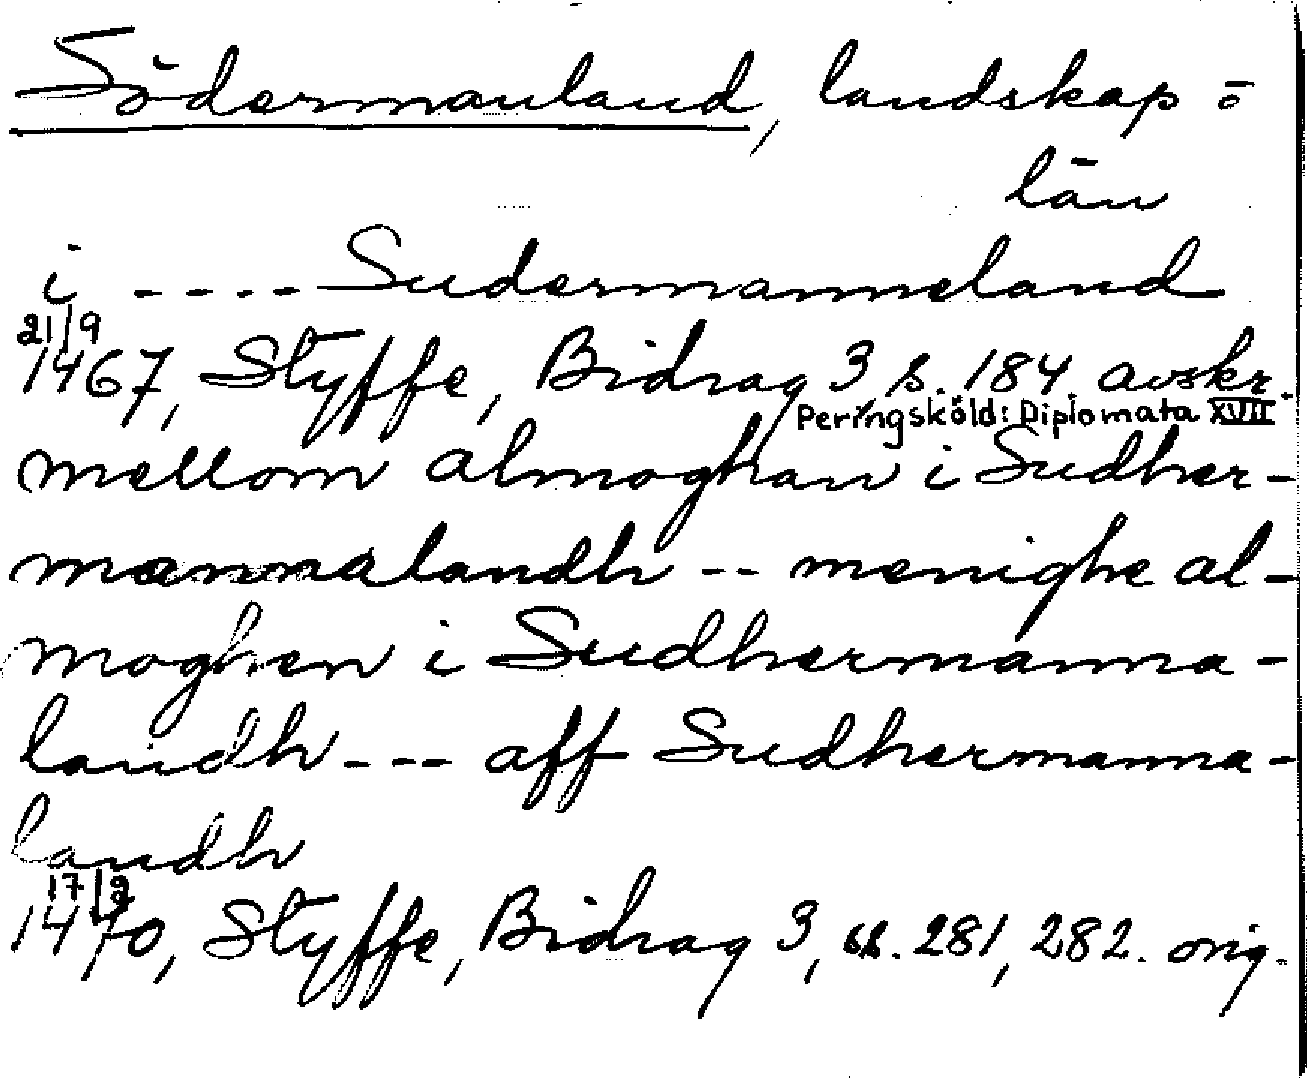 Södermanland, landskap o
län
i ---- Sudermanneland
21/9
1467, Styffe, Bidrag 3 s. 184 avskr.
Peringsköld: Diplomata XVII
mellom almoghan i Sudher-
mannalandh -- menighe al-
moghen i Sudhermanna-
landh --- aff Sudhermanna-
landh
17/9
1470, Styffe, Bidrag 3, ss. 281, 282. orig.